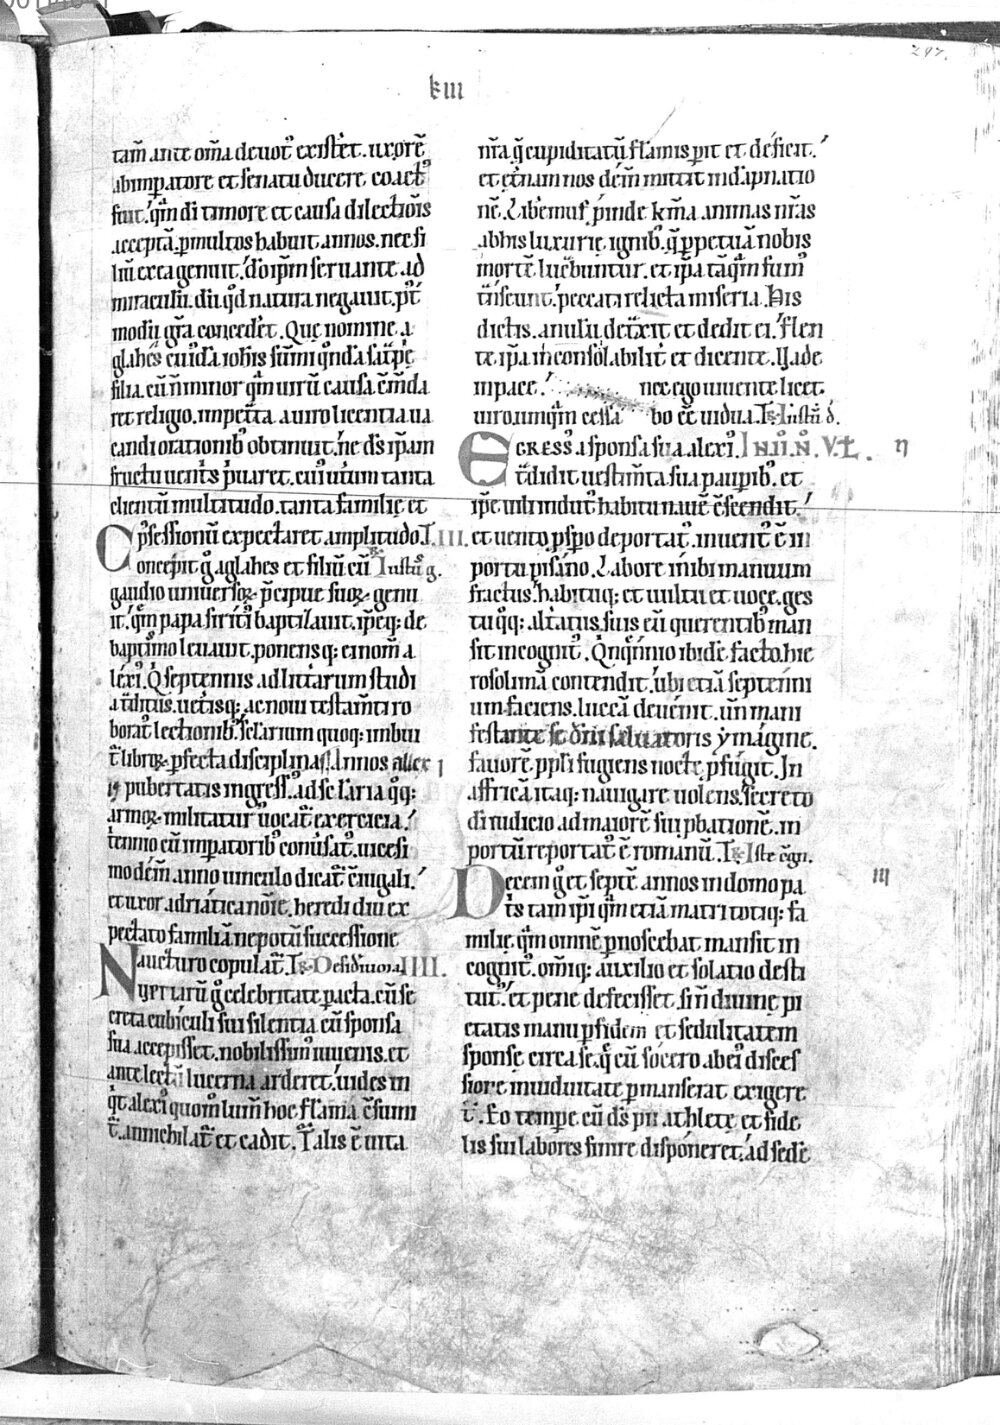 297.
kııı
tam̄ ante om̄a deuot᷒ existēt. uxorē
ab imp̄atore et senatu ducere coact᷒
fuit. qm̄ di timore et causa dilectiōis
acceptā. p multos habuit annos. nec fi
liū ex ea genuit. dn̄o ip̄m seruante ad
miraculū. diu qd̄ natura negauit. pt᷒
modū gr̄a concedēt. Que nomine a
glahes cuiusdā iohis sūmi quōdā satrpe
filia. cū n̄ minor qm̄ uirū causa cōm̄da
ret religio. impetrata a uiro licentia ua
candi orationib᷒ obtinuit. ne ds̄ ip̄am
fructu uentis p̄uaret. cui᷒ utiū tanta
clientū multitudo. tanta familie et
possessionū expectaret amplitudo. L.III.
Concepit g̊ aglahes et filiū eū
gaudio uniuersoꝝ. p̄cipue suoꝝ genu
it. qm̄ papa siricī baptizauit. ip̄eq; de
baptismo leuauit. ponens q; ei nom̄ a
lexi᷒. Q septennis ad litt̄arum studi
a tradit᷒. uetisq; ac noui testam̄ti ro
borat᷒ lectionib᷒. selarium quoq; imbui
t᷒ libroꝝ pfecta disciplinas. Annos
pubertatis ingress᷒. ad sclaria qq;
armoꝝ militatur uocat᷒ exercicia.
tennio cū imp̄atorib᷒ conūsat᷒. uicesi
mo dem̄ anno uinculo dicat᷒ 9iugali.
et uxor adriatica noīe. heredi diu ex
pectato familiā nepotū successione
aucturo copulat᷒. Desideriū aīe IIII.
Nuptiarū g̊ celebritate pacta. cū se
creta cubiculi sui silentia cū sponsa
sua accepisset. nobilissim᷒ iuuenis. et
ante lectū lucerna arderet. uides in
qt alexi᷒ quom̄ lum̄ hoc flāma 9sumi
t᷒. annichilat᷒ et cadit. Talis ē uita
nr̄a. q̄ cupiditatū flāmis pit et deficit.
et et̄nam nos dem̄ mittit in dāpnatio
nē. Libem᷒ pinde kma animas nr̄as
ab his luxurie ignib᷒. q̄ ppetuā nobis
mortē lucbuntur. et ip̄a tāqm̄ fum᷒
trāseunt. peccati relicta miseria. His
dictis. anulū detxit et dedit ei. flen
te ip̄a in consolabilit᷒ et dicente. Uade
in pace. nec ego uiuente licet
uiro. umiqm̄ cessa bo eē uidua. R̷. Iustū d.
EGRESS᷒ a sponsa sua alexi᷒. IN II. N. V. L.
tradidit uestim̄ta sua paupib᷒. et
ip̄e uili indut᷒ habitu nauē 9scendit.
et uento pspo deportat᷒. inuent᷒ ē in
portu pisano. Labore inibi manuum
fractus. habituq; et uultu et uoce. ges
tu qq; alt̄atus. suis eū querentib᷒ man
sit incognit᷒. Qnq̄nnio ibidē facto. hie
rosolimā contendit. ubi etiā septēni
um faciens. luccā deuenit. un̄ mani
festante se dn̄i saluatoris ymagine.
fauorē ppli fugiens nocte pfugit. In
affricā itaq; nauigare uolens. secreto
di iudicio ad maiorē sui pbationē. in
portū reportat᷒ ē romanū. R̷. Iste cogn.
Decem g̊ et septē annos in domo pa
tris tam ip̄i qm̄ etiā matri totiq; fa
milie. qm̄ omnē pnoscebat mansit in
cognit᷒. om̄iq; auxilio et solatio desti
tut᷒. et pene defecisset. sin̄ diuine pi
etatis manu pfidem et sedulitatem
sponse circa se. q̄ cū socero ab ei᷒ disces
sione inuiduitate pmanserat exigere
t᷒. Eo tempe cū ds̄ pii athlete et fide
lis sui labores finire disponeret. ad sedē
η
III